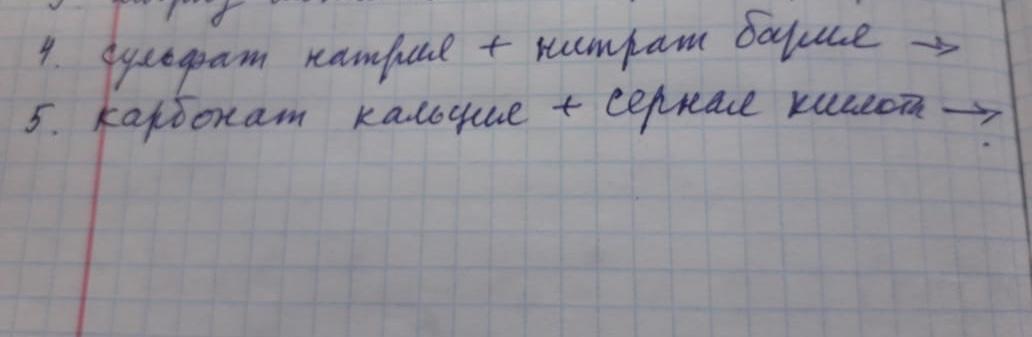 4. сульфат натрия + нитрат бария →
5. карбонат кальция + серная кислота →